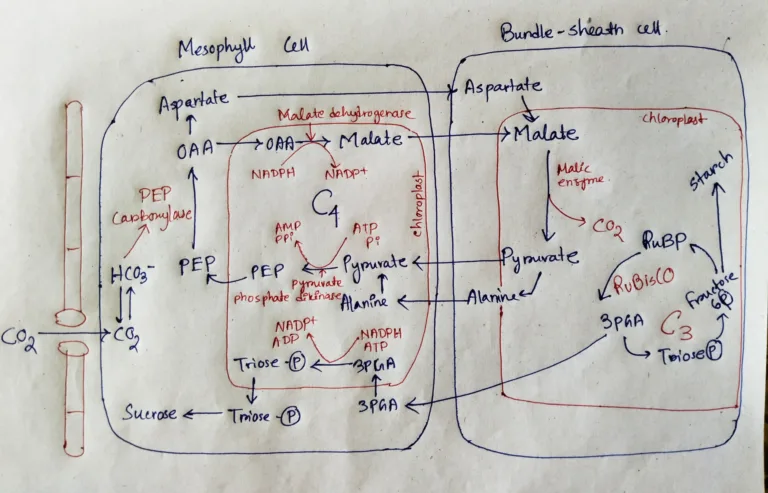 Mesophyll Cell
Bundle-sheath cell.
Aspartate
Aspartate
Malate dehydrogenase
chloroplast
OAA
OAA
Malate
Malate
NADPH
NADP+
Malic
enzyme
starch
PEP
Carboxylase
C4
chloroplast
CO2
AMP
PPi
ATP
Pi
RuBP
HCO3-
PEP
PEP
Pyruvate
Pyruvate
RuBisCO
pyruvate
phosphate dikinase
Alanine
Alanine
fructose
6P
CO2
CO2
NADP+
ADP
NADPH
ATP
3PGA
C3
Triose P
Triose-P
3PGA
Sucrose
Triose-P
3PGA